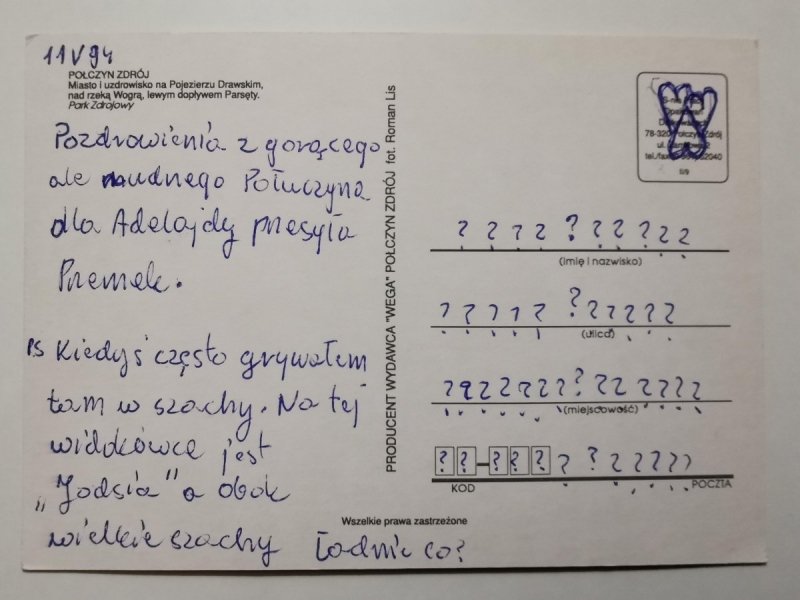 11 V 94
POŁCZYN ZDRÓJ
Miasto i uzdrowisko na Pojezierzu Drawskim,
nad rzeką Wogrą, lewym dopływem Parsęty.
Park Zdrojowy
Pozdrowienia z gorącego
ale nudnego Połuczyna
dla Adelajdy presyła
Premek.
PS Kiedyś często grywałem
tam w szachy. Na tej
widokówce jest
"Jodsia" a obok
wielkie szachy Ładnie co?
PRODUCENT WYDAWCA "WEGA" POŁCZYN ZDRÓJ fot. Roman Lis
78-320 Połczyn Zdrój
? ? ? ? ? ? ? ? ? ?
(imię i nazwisko)
? ? ? ? ? ? ? ? ? ? ?
(ulica)
? ? ? ? ? ? ? ? ? ? ? ? ? ?
(miejscowość)
? ? - ? ? ? ? ? ? ? ? ? ?
KOD POCZTA
Wszelkie prawa zastrzeżone